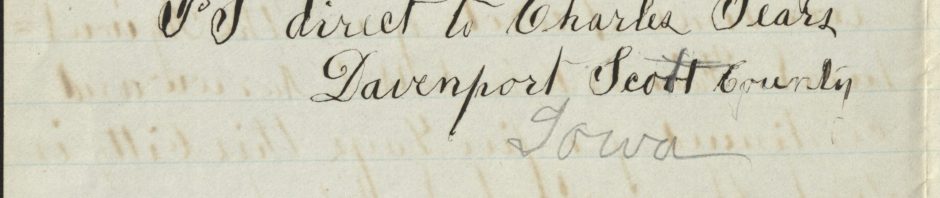 PS direct to Charles Sears
Davenport Scott County
Iowa